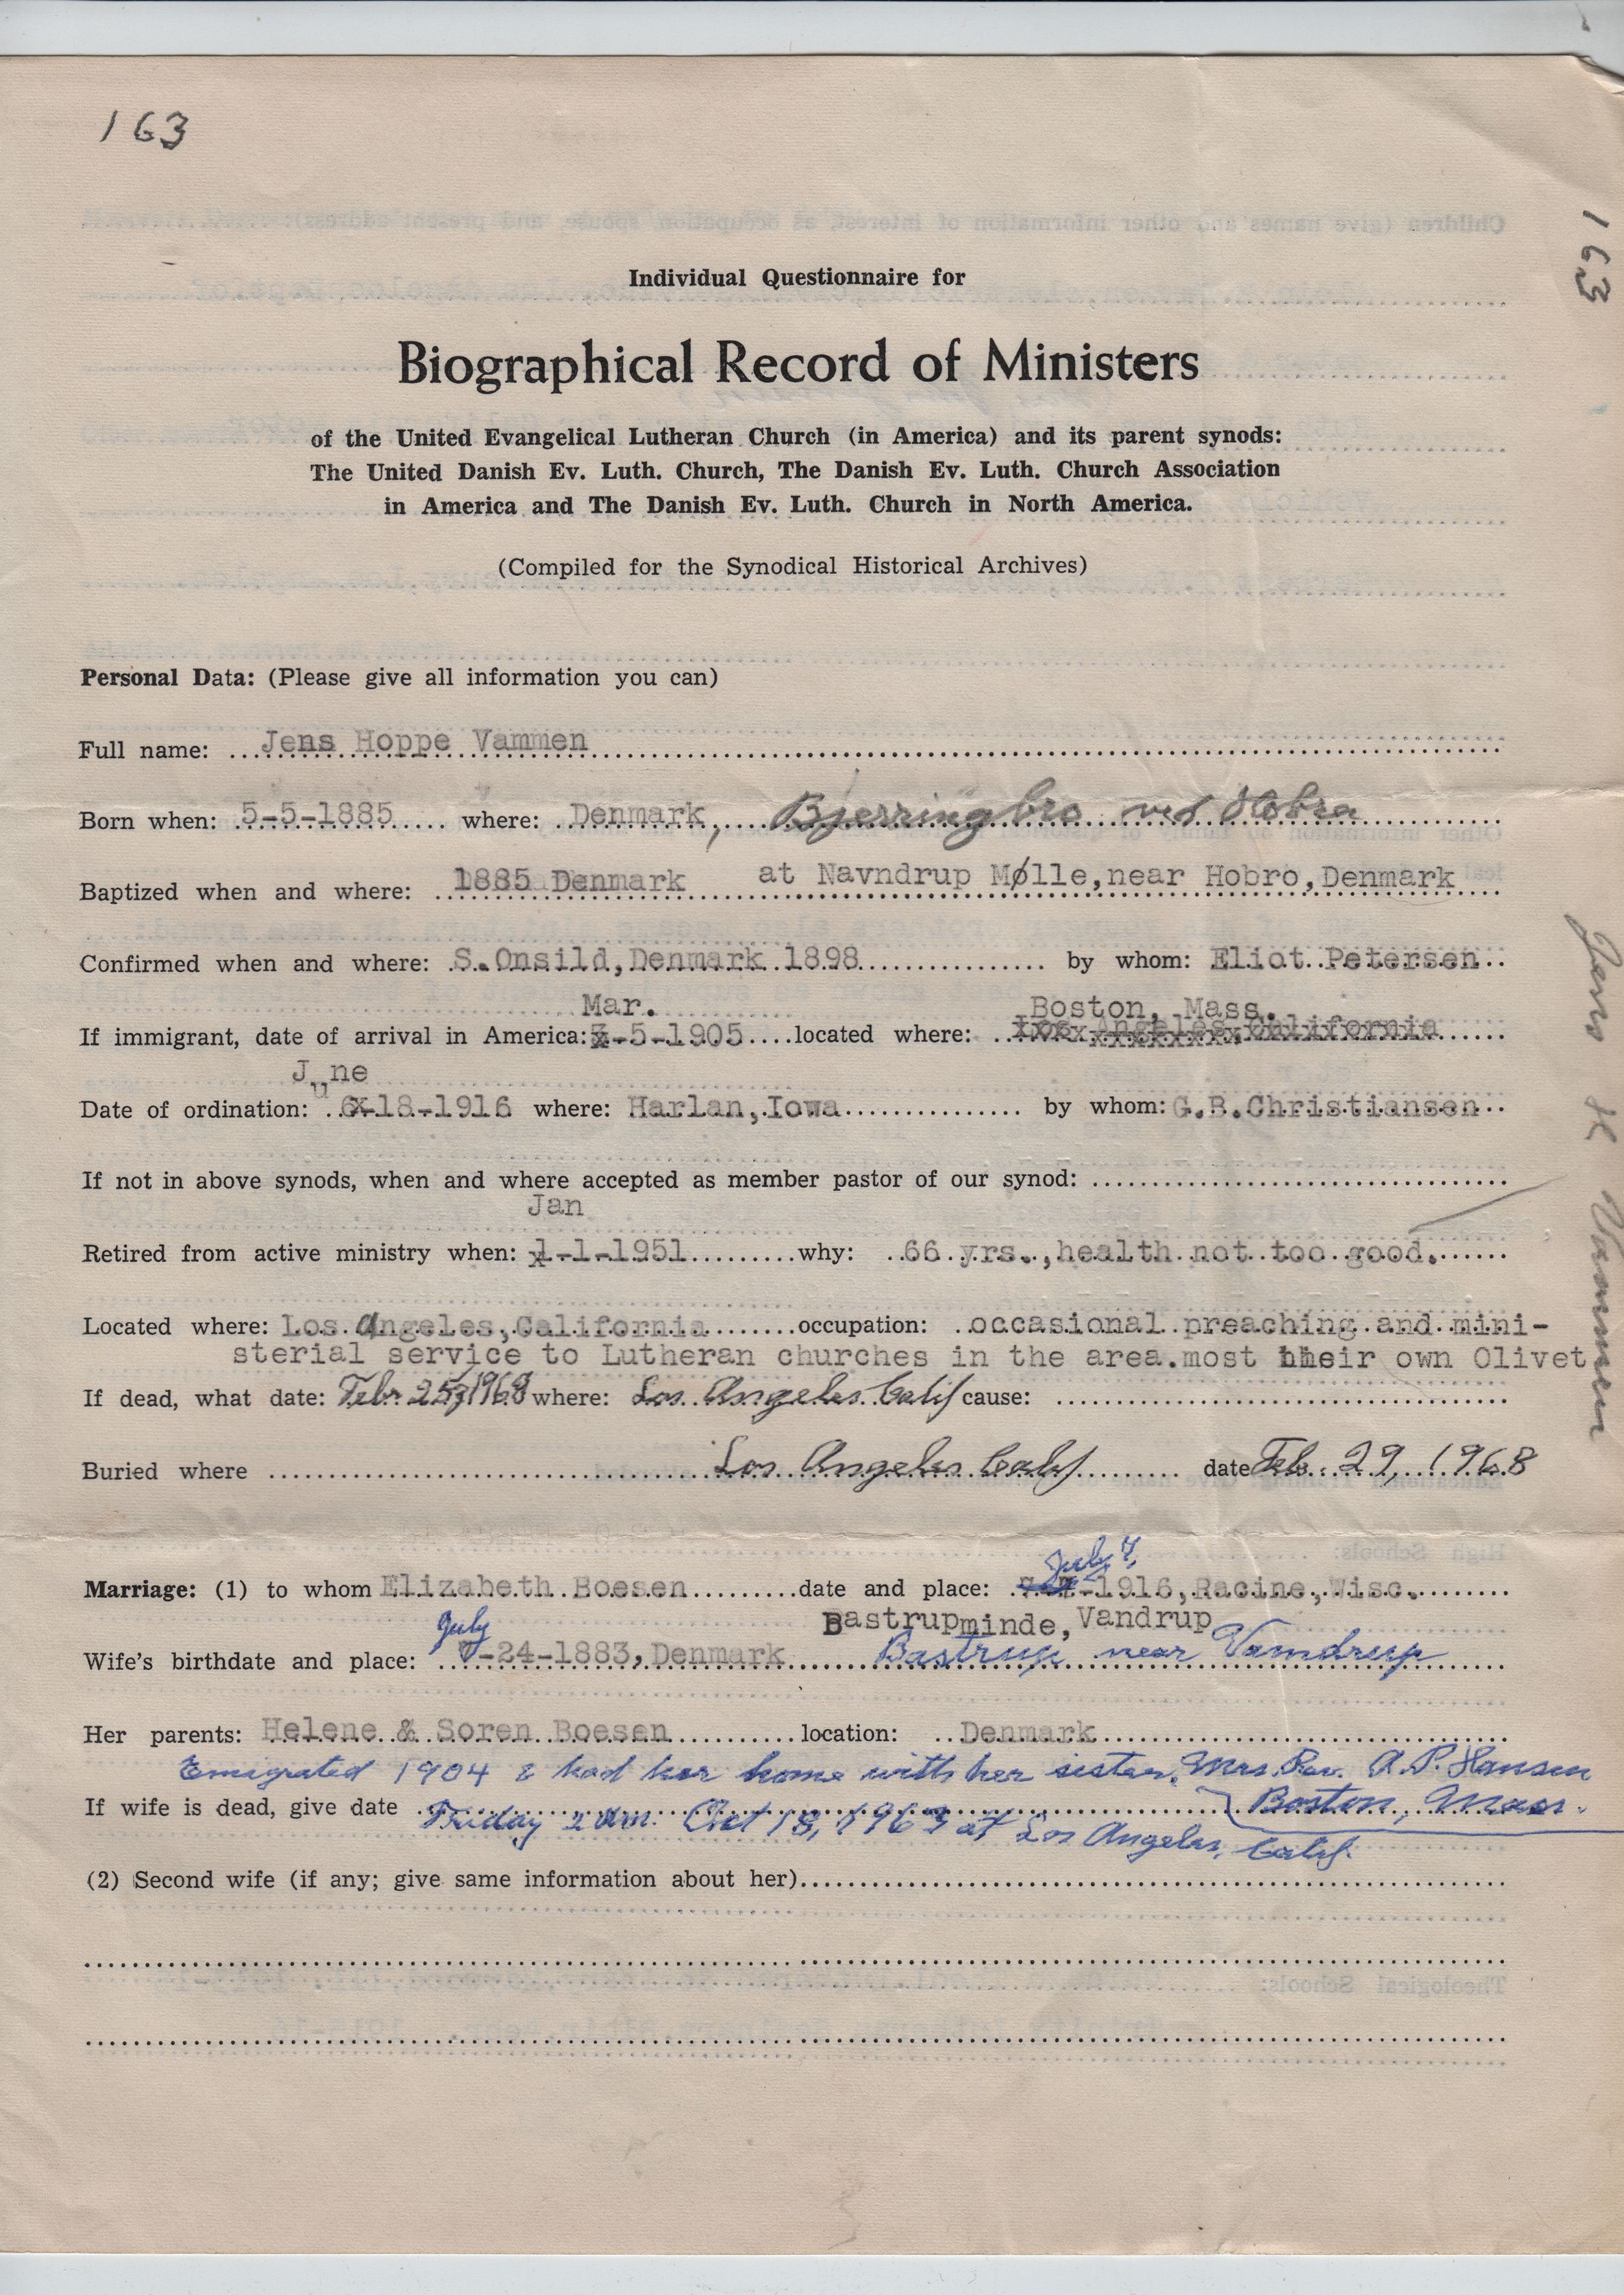 163
163
Individual Questionnaire for
Biographical Record of Ministers
of the United Evangelical Lutheran Church (in America) and its parent synods:
The United Danish Ev. Luth. Church, The Danish Ev. Luth. Church Association
in America and The Danish Ev. Luth. Church in North America.
(Compiled for the Synodical Historical Archives)
Personal Data: (Please give all information you can)
Full name: Jens Hoppe Vammen
Born when: 5-5-1885 where: Denmark, Bjerringbro ved Hobro
Baptized when and where: 1885 Denmark at Navndrup Mølle, near Hobro, Denmark
Confirmed when and where: S. Onsild, Denmark 1898 by whom: Eliot Petersen
Mar. Boston, Mass.
If immigrant, date of arrival in America: 3-5-1905 located where: Los Angeles, California
June
Date of ordination: 6-18-1916 where: Harlan, Iowa by whom: G.B.Christiansen
If not in above synods, when and where accepted as member pastor of our synod:
Jan
Retired from active ministry when: 1-1-1951 why: 66 yrs., health not too good.
Located where: Los Angeles, California occupation: occasional preaching and mini-
sterial service to Lutheran churches in the area. most their own Olivet
If dead, what date: Febr 25, 1968 where: Los Angeles Calif cause:
Buried where Los Angeles Calif date Feb. 29, 1968
Jens H Vammen
July 7,
Marriage: (1) to whom Elizabeth Boesen date and place: 7-7-1916, Racine, Wisc.
July Bastrupminde, Vandrup
Wife's birthdate and place: 7-24-1883, Denmark Bastrup near Vamdrup
Her parents: Helene & Soren Boesen location: Denmark
Emigrated 1904 & had her home with her sister, Mrs. Rev. A. P. Hansen
Boston, Mass.
If wife is dead, give date Friday 2 AM. Oct 18, 1963 at Los Angeles, Calif.
(2) Second wife (if any; give same information about her)